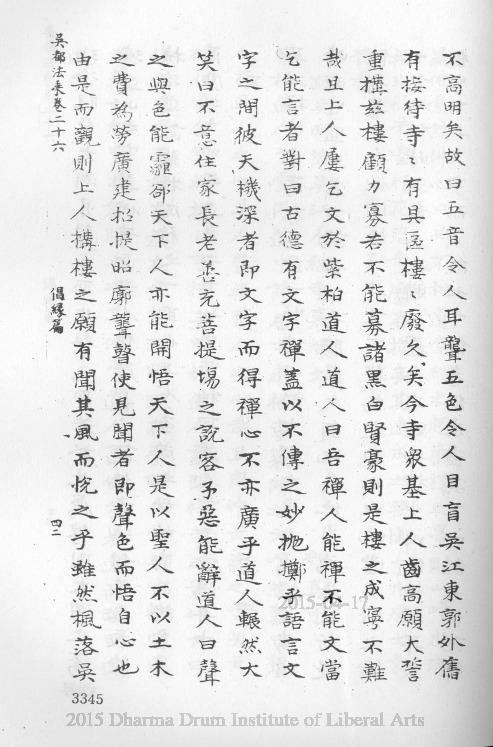 不高明矣故曰五音令人耳聾五色令人目盲吳江東郭外舊
有接待寺〻有具區樓〻廢久矣今寺眾基上人齒高願大誓
重搆茲樓顧力寡若不能募諸黑白賢豪則是樓之成寧不難
哉且上人屢乞文於紫柏道人道人曰吾禪人能禪不能文當
乞能言者對曰古德有文字禪蓋以不傳之妙拋擲乎語言文
字之間彼天機深者即文字而得禪心不亦廣乎道人囅然大
笑曰不意住家長老善充菩提場之說客予惡能辭道人曰聲
之與色能聾瞽天下人亦能開悟天下人是以聖人不以土木
之費為勞廣建招提昭廓聾瞽使見聞者即聲色而悟自心也
由是而觀則上人搆樓之願有聞其風而悅之乎雖然楓落吳
吳都法乘卷二十六
倡緣篇
四二
3345
2015-04-17
2015 Dharma Drum Institute of Liberal Arts